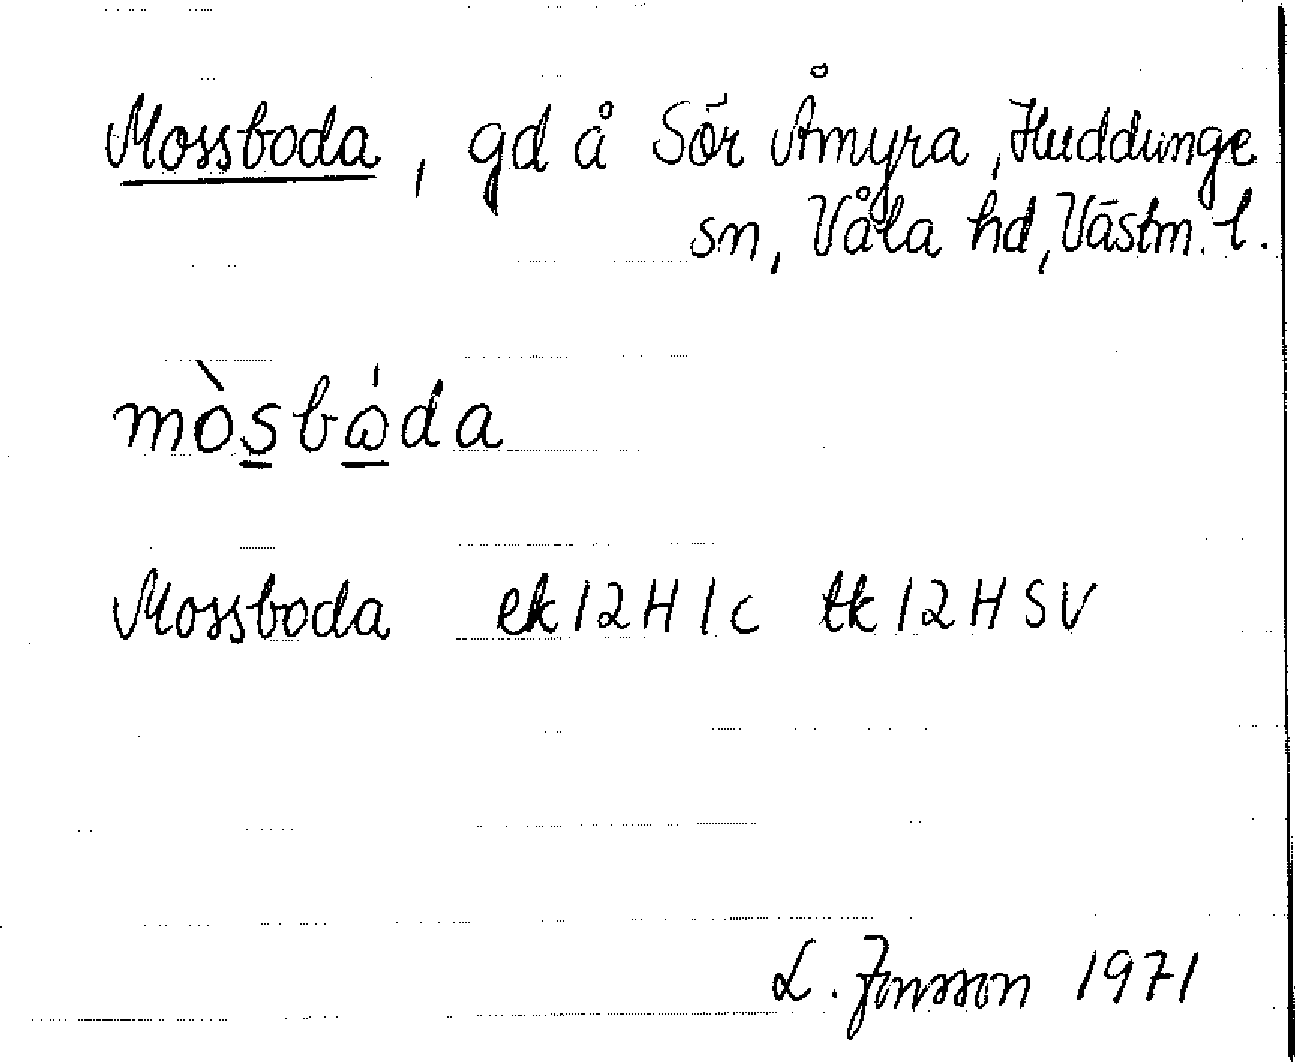 Mossboda, gd å Sör Åmyra, Huddunge
sn, Våla hd, Västm. l.
mòsbω̇da
Mossboda ek 12H1c tk 12HSV
L. Jonsson 1971